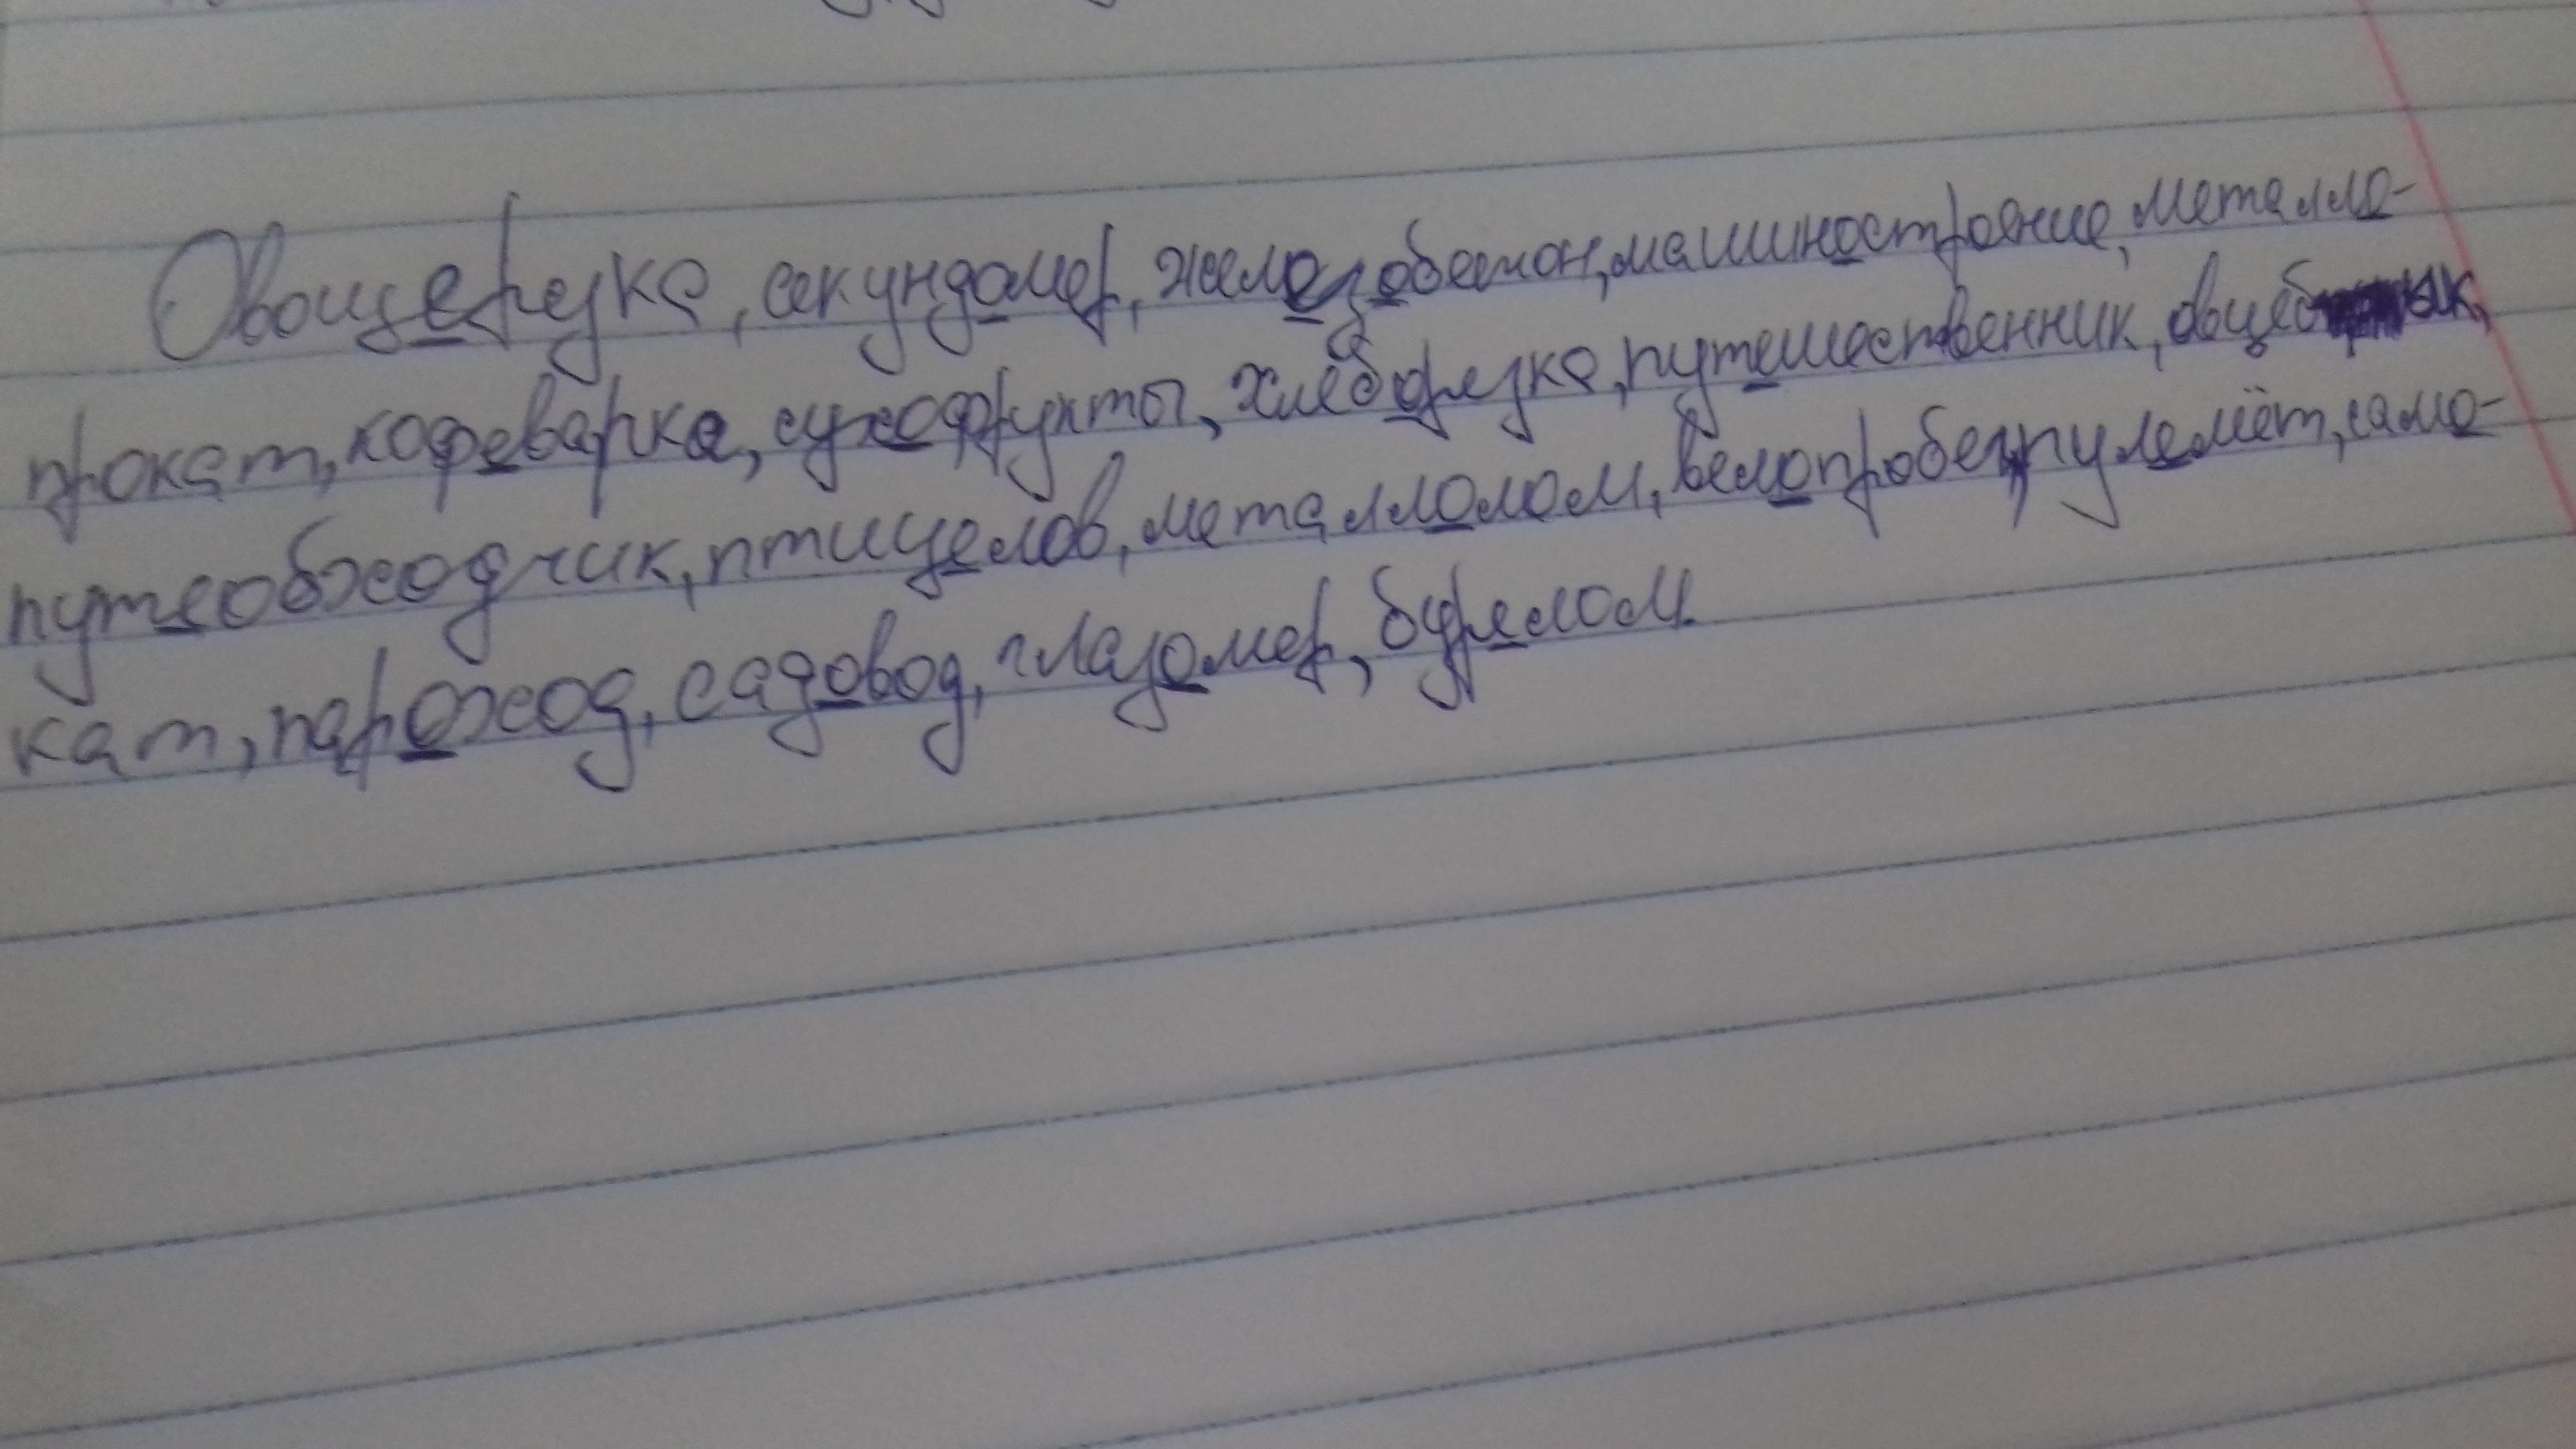 Овощерезка, секундомер, железобетон, машиностроение, металло-
прокат, кофеварка, сухофрукты, хлеборезка, путешественник, овцебык,
путеобходчик, птицелов, металлолом, велопробег, пулемёт, само-
кат, пароход, садовод, глазомер, бурелом.